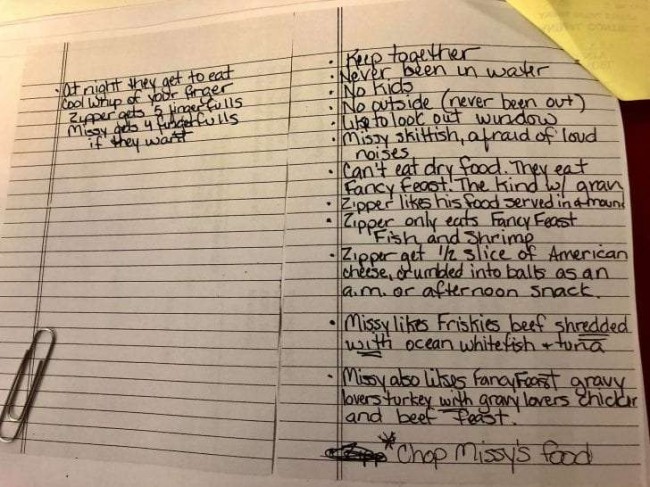 · At night they get to eat
cool whip of your finger
Zipper gets 5 fingerfulls
Missy gets 4 fingerfulls
if they want
· Keep together
· Never been in water
· No kids
· No outside (never been out)
· Like to look out window
· Missy skittish, afraid of loud
noises
· Can't eat dry food. They eat
Fancy Feast! The kind w/ grav
· Zipper likes his food served in a mound
· Zipper only eats Fancy Feast
Fish and Shrimp
· Zipper get 1/2 slice of American
cheese, crumbled into balls as an
a.m. or afternoon snack.
· Missy likes Friskies beef shredded
with ocean whitefish + tuna
· Missy also likes Fancy Feast gravy
lovers turkey with gravy lovers chicken
and beef feast.
* Chop Missy's food